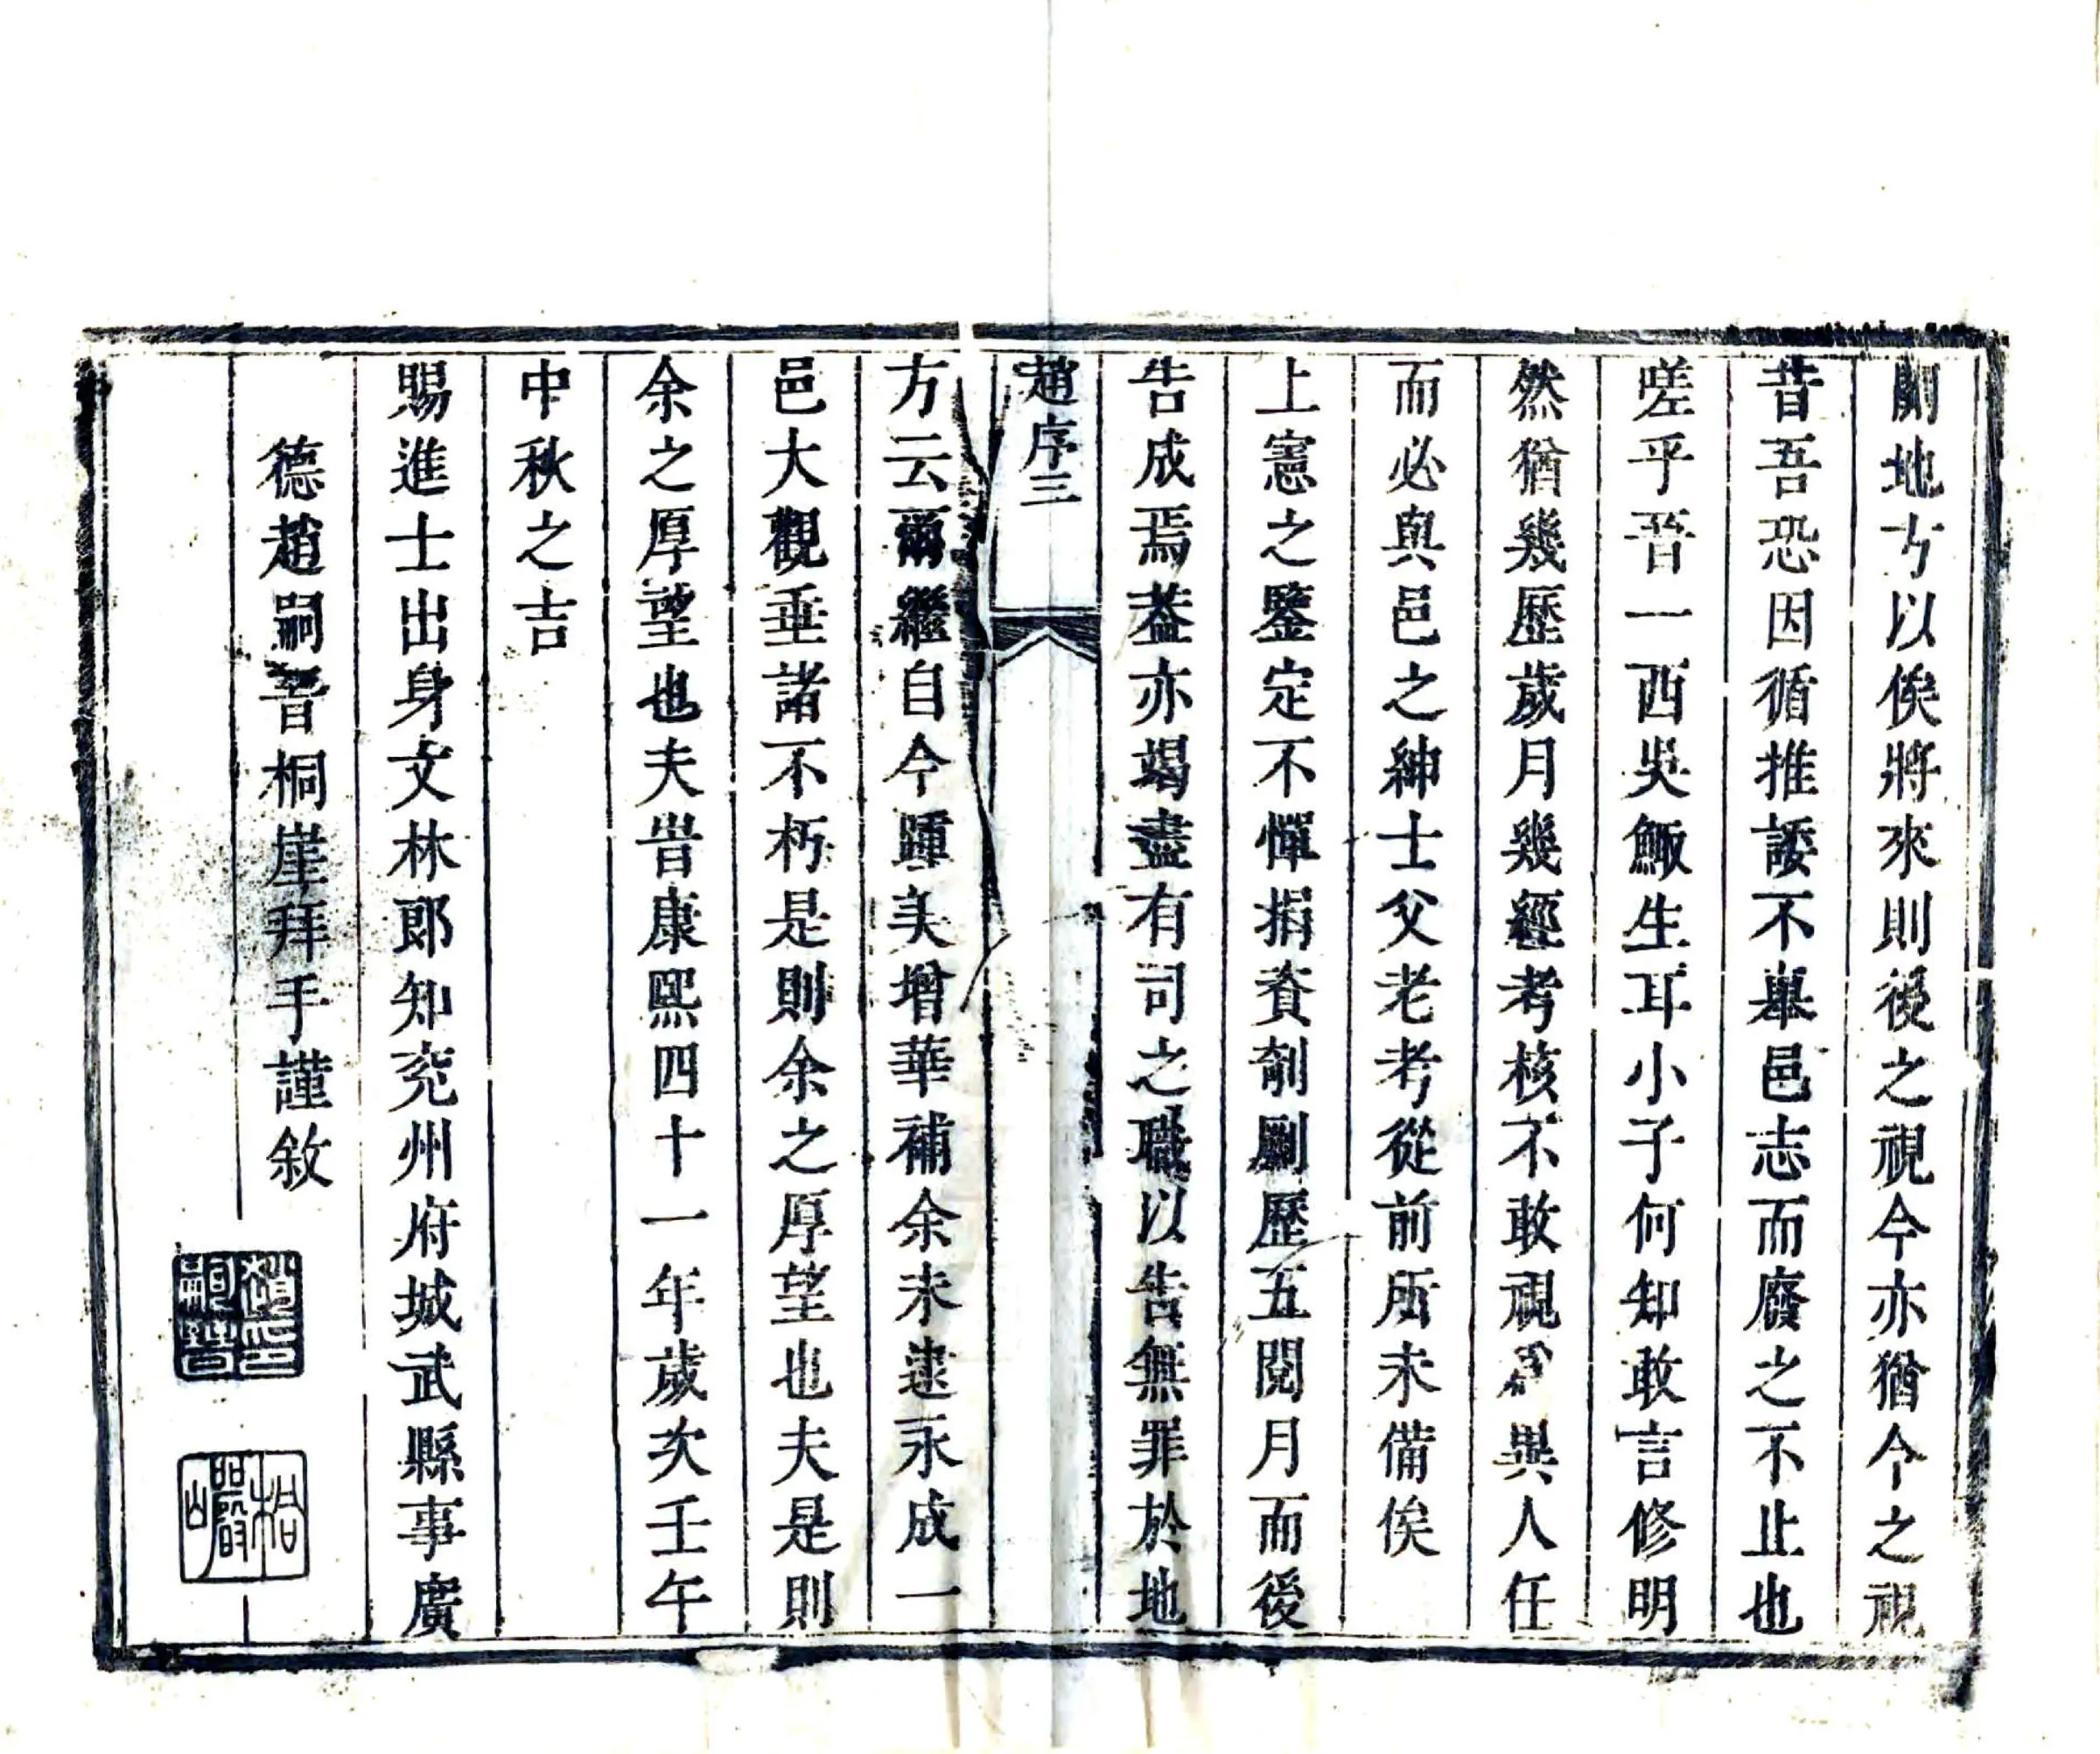 劂地方以俟將來則後之視今亦猶今之視
昔吾恐因循推諉不舉邑志而廢之不止也
嗟乎晉一西吳鯫生耳小子何知敢言修明
然猶幾歷歲月幾經考核不敢視爲異人任
而必與邑之紳士父老考從前所未備俟
上憲之鑒定不憚捐資剞劂歷五閱月而後
告成焉葢亦竭盡有司之職以告無罪於地
趙序三
方云爾繼自今踵美增華補余未逮永成一
邑大觀垂諸不朽是則余之厚望也夫是則
余之厚望也夫旹康熙四十一年歲次壬午
中秋之吉
賜進士出身文林郎知兖州府城武縣事廣
德趙嗣晉桐崖拜手謹敘
趙印嗣晉
桐巖